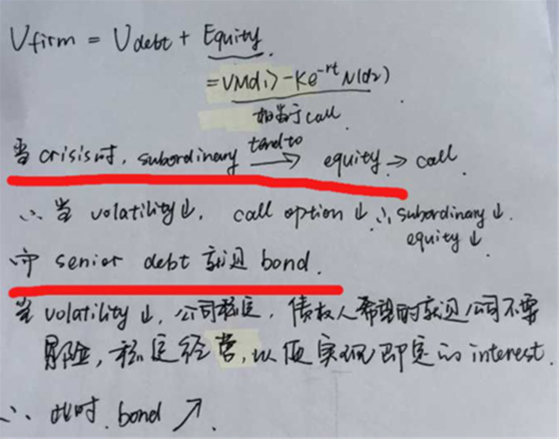 Vfirm = Vdebt + Equity
= VN(d₁) - Ke^-rt N(d₂)
相当于call
当crisis时, subordinary tend to → equity → call.
∴ 当 volatility↓, call option ↓ ∴ subordinary ↓.
equity ↓
而 senior debt 就是 bond.
当 volatility ↓, 公司稳定, 债权人希望的就是公司不要
冒险, 稳定经营, 以便实现既定的 interest.
∴ 此时 bond ↗.